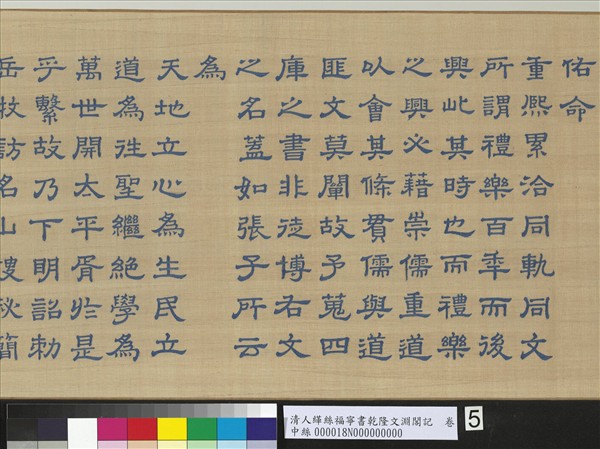 佑命
重熈累洽同軌同文
所謂禮樂百秊而後
興此其時也而禮樂
之興必藉崇儒重道
以會其條貫儒與道
匪文莫闡故予蒐四
庫之書非徒博右文
之名蓋如張子所云
為
天地立心為生民立
道為徃聖繼絕學為
萬世開太平胥於是
乎繫故乃下明詔勅
岳牧訪名山搜秋簡
清人緙絲福寧書乾隆文淵閣記 卷
中絲000018N000000000
5